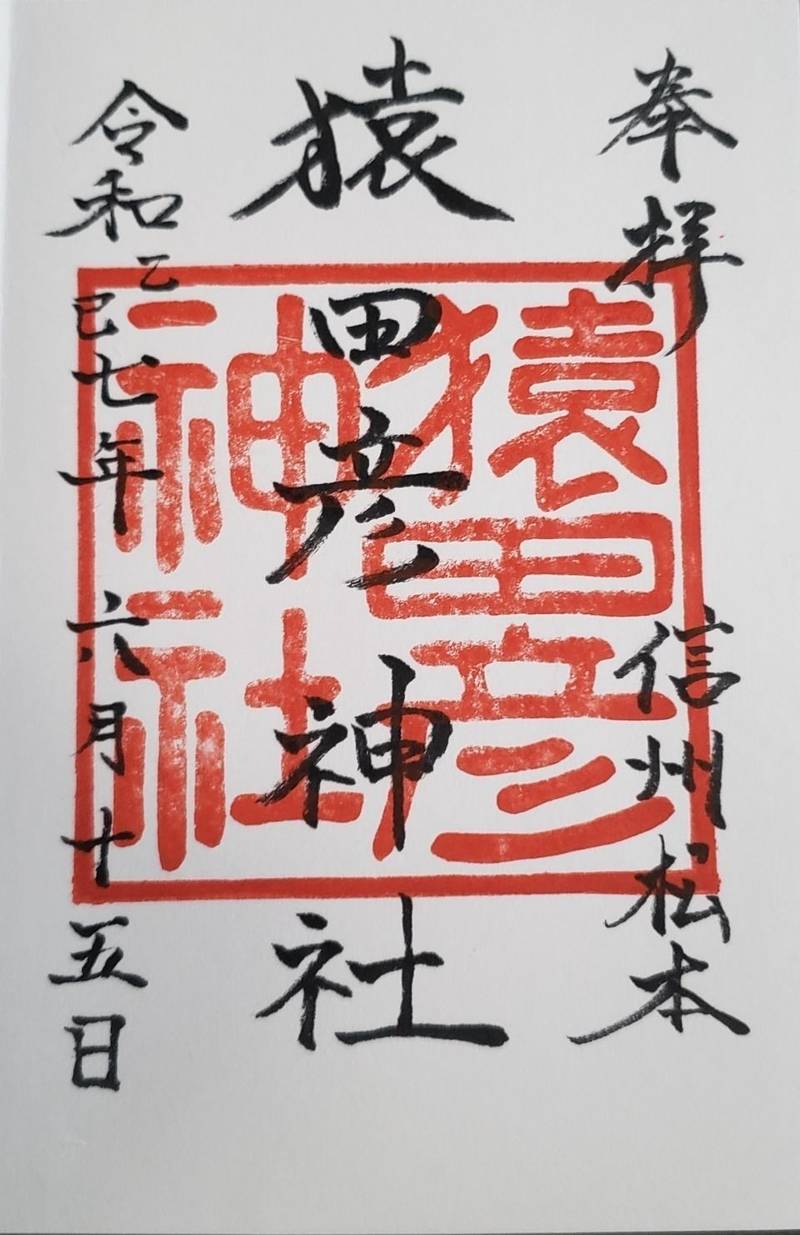 奉拝
信州松本
猿田彦神社
令和乙巳七年六月十五日
猿田彦
神社